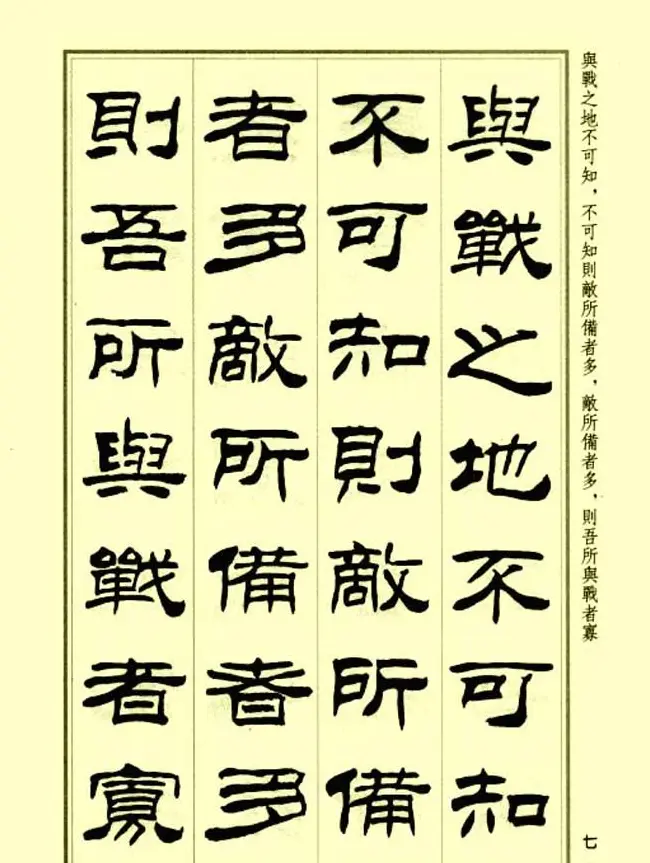 與戰之地不可知，不可知則敵所備者多，敵所備者多，則吾所與戰者寡
與戰之地不可知
不可知則敵所備
者多敵所備者多
則吾所與戰者寡
七